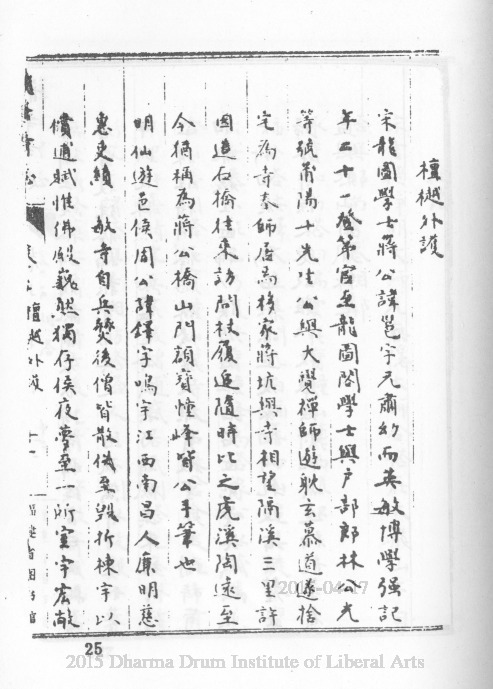 檀樾外護
宋龍圖學士蔣公諱邕字元肅幼而英敏博學强記
年二十登第官至龍圖閣學士與户部郎林公光
等號莆陽十先生公與大覺禪師遊耽玄慕道遂捨
宅為寺奉師居焉移家蔣坑與寺相望隔溪三里許
因造石橋往來訪問杖履追隨時比之虎溪陶遠至
今猶稱為蔣公橋山門額寶幢峰皆公手筆也
明仙遊邑侯周公諱鐸字鳴宇江西南昌人廉明慈
惠吏績 敝寺自兵燹後僧皆散佚至毀折棟宇以
償逋賦惟佛殿巍然獨存侯夜夢至一所室宇宏敞
檀越外護
十一
25
2015-04-17
2015 Dharma Drum Institute of Liberal Arts